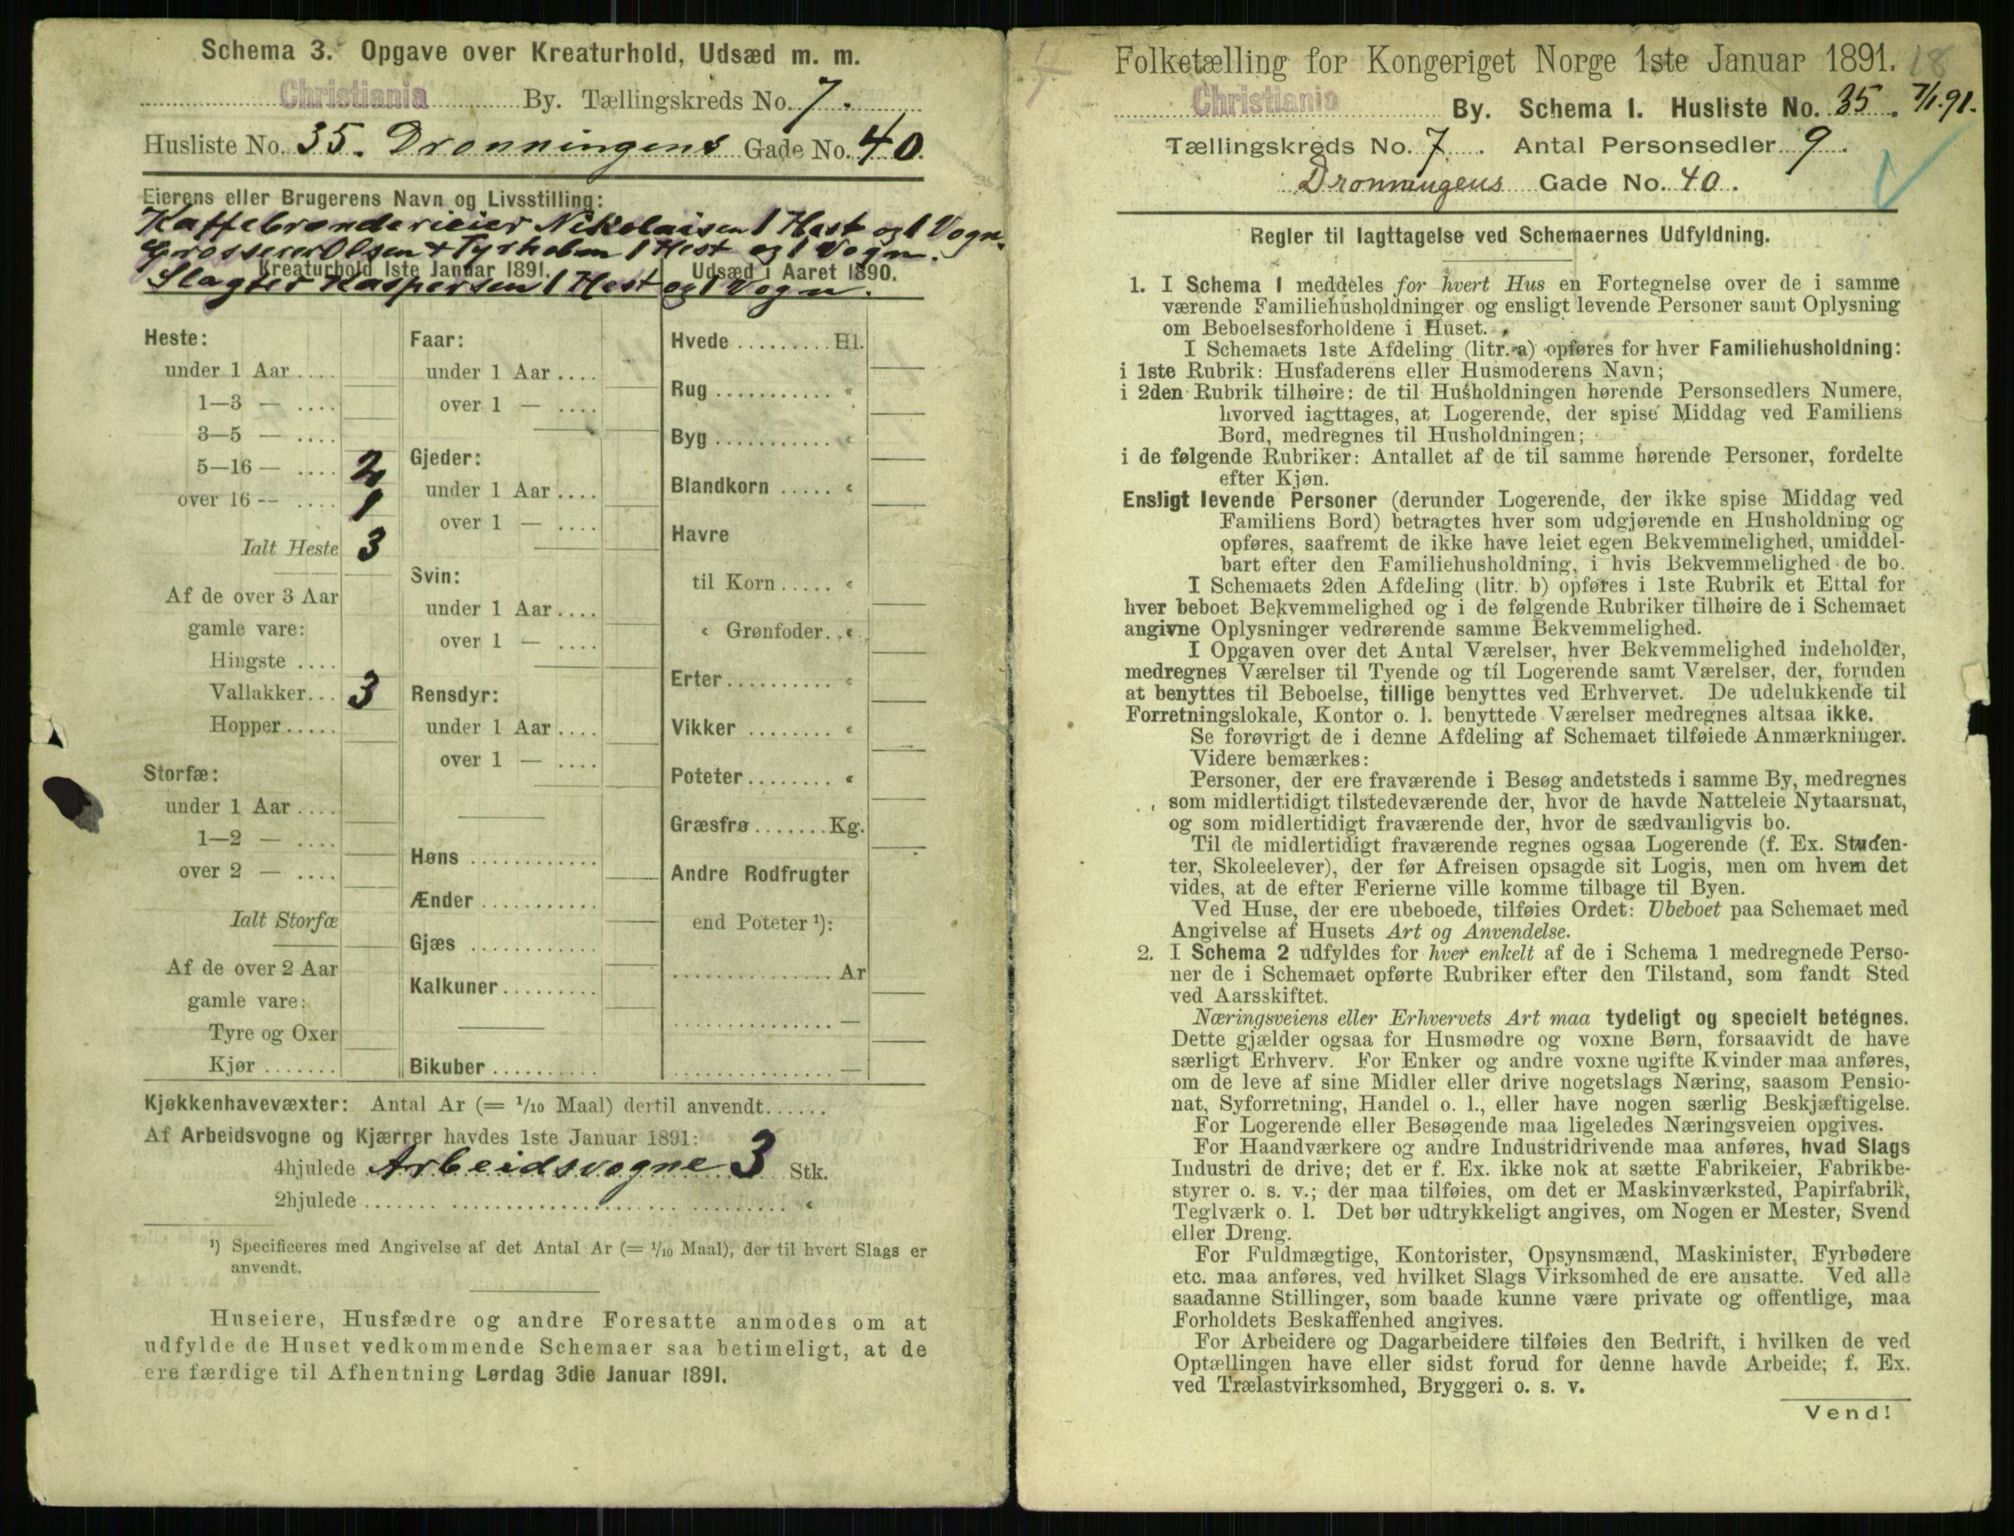 Schema 3. Opgave over Kreaturhold, Udsæd m. m.
Christiania By. Tællingskreds No. 7.
Husliste No. 35. Dronningens Gade No. 40.
Eierens eller Brugerens Navn og Livsstilling:
Kaffebrænderieier Nikolaisen 1 Hest og 1 Vogn.
Grosserer Olsen & Tyrholm 1 Hest og 1 Vogn.
Kreaturhold 1ste Januar 1891. Udsæd i Aaret 1890.
Slagter Kaspersen 1 Hest og 1 Vogn.
Heste:
under 1 Aar ....
1—3 — ....
3—5 — ....
5—16 — .... 2
over 16 -- .... 1
Ialt Heste 3
Af de over 3 Aar
gamle vare:
Hingste ....
Vallakker... 3
Hopper.....
Storfæ:
under 1 Aar ....
1—2 — ....
over 2 — ....
Ialt Storfæ
Af de over 2 Aar
gamle vare:
Tyre og Oxer
Kjør .......
Faar:
under 1 Aar ....
over 1 — ....
Gjeder:
under 1 Aar ....
over 1 — ....
Svin:
under 1 Aar ....
over 1 — ....
Rensdyr:
under 1 Aar ....
over 1 — ....
Høns ............
Ænder ...........
Gjæs ............
Kalkuner.........
Bikuber ..........
Hvede ......... Hl.
Rug ........... «
Byg ........... «
Blandkorn ..... «
Havre
til Korn ..... «
« Grønfoder.. «
Erter.......... «
Vikker ........ «
Poteter........ «
Græsfrø ....... Kg.
Andre Rodfrugter
end Poteter ¹):
............... Ar
............... —
............... —
Kjøkkenhavevæxter: Antal Ar (= 1/10 Maal) dertil anvendt......
Af Arbeidsvogne og Kjærrer havdes 1ste Januar 1891:
4hjulede Arbeidsvogne 3 Stk.
2hjulede ....... «
¹) Specificeres med Angivelse af det Antal Ar (= 1/10 Maal), der til hvert Slags er
anvendt.
Huseiere, Husfædre og andre Foresatte anmodes om at
udfylde de Huset vedkommende Schemaer saa betimeligt, at de
ere færdige til Afhentning Lørdag 3die Januar 1891.
Folketælling for Kongeriget Norge 1ste Januar 1891. 18
Christiania By. Schema I. Husliste No. 35. 7/1.91.
Tællingskreds No. 7. Antal Personsedler 9.
Dronningens Gade No. 40.
Regler til Iagttagelse ved Schemaernes Udfyldning.
1. I Schema I meddeles for hvert Hus en Fortegnelse over de i samme
værende Familiehusholdninger og ensligt levende Personer samt Oplysning
om Beboelsesforholdene i Huset.
I Schemaets 1ste Afdeling (litr. a) opføres for hver Familiehusholdning:
i 1ste Rubrik: Husfaderens eller Husmoderens Navn;
i 2den Rubrik tilhøire: de til Husholdningen hørende Personsedlers Numere,
hvorved iagttages, at Logerende, der spise Middag ved Familiens
Bord, medregnes til Husholdningen;
i de følgende Rubriker: Antallet af de til samme hørende Personer, fordelte
efter Kjøn.
Ensligt levende Personer (derunder Logerende, der ikke spise Middag ved
Familiens Bord) betragtes hver som udgjørende en Husholdning og
opføres, saafremt de ikke have leiet egen Bekvemmelighed, umiddel-
bart efter den Familiehusholdning, i hvis Bekvemmelighed de bo.
I Schemaets 2den Afdeling (litr. b) opføres i 1ste Rubrik et Ettal for
hver beboet Bekvemmelighed og i de følgende Rubriker tilhøire de i Schemaet
angivne Oplysninger vedrørende samme Bekvemmelighed.
I Opgaven over det Antal Værelser, hver Bekvemmelighed indeholder,
medregnes Værelser til Tyende og til Logerende samt Værelser, der, foruden
at benyttes til Beboelse, tillige benyttes ved Erhvervet. De udelukkende til
Forretningslokale, Kontor o. l. benyttede Værelser medregnes altsaa ikke.
Se forøvrigt de i denne Afdeling af Schemaet tilføiede Anmærkninger.
Videre bemærkes:
Personer, der ere fraværende i Besøg andetsteds i samme By, medregnes
som midlertidigt tilstedeværende der, hvor de havde Natteleie Nytaarsnat,
og som midlertidigt fraværende der, hvor de sædvanligvis bo.
Til de midlertidigt fraværende regnes ogsaa Logerende (f. Ex. Studen-
ter, Skoleelever), der før Afreisen opsagde sit Logis, men om hvem det
vides, at de efter Ferierne ville komme tilbage til Byen.
Ved Huse, der ere ubeboede, tilføies Ordet: Ubeboet paa Schemaet med
Angivelse af Husets Art og Anvendelse.
2. I Schema 2 udfyldes for hver enkelt af de i Schema 1 medregnede Perso-
ner de i Schemaet opførte Rubriker efter den Tilstand, som fandt Sted
ved Aarsskiftet.
Næringsveiens eller Erhvervets Art maa tydeligt og specielt betegnes.
Dette gjælder ogsaa for Husmødre og voxne Børn, forsaavidt de have
særligt Erhverv. For Enker og andre voxne ugifte Kvinder maa anføres,
om de leve af sine Midler eller drive nogetslags Næring, saasom Pensio-
nat, Syforretning, Handel o. l., eller have nogen særlig Beskjæftigelse.
For Logerende eller Besøgende maa ligeledes Næringsveien opgives.
For Haandværkere og andre Industridrivende maa anføres, hvad Slags
Industri de drive; det er f. Ex. ikke nok at sætte Fabrikeier, Fabrikbe-
styrer o. s. v.; der maa tilføies, om det er Maskinværksted, Papirfabrik,
Teglværk o. l. Det bør udtrykkeligt angives, om Nogen er Mester, Svend
eller Dreng.
For Fuldmægtige, Kontorister, Opsynsmænd, Maskinister, Fyrbødere
etc. maa anføres, ved hvilket Slags Virksomhed de ere ansatte. Ved alle
saadanne Stillinger, som baade kunne være private og offentlige, maa
Forholdets Beskaffenhed angives.
For Arbeidere og Dagarbeidere tilføies den Bedrift, i hvilken de ved
Optællingen have eller sidst forud for denne havde Arbeide; f. Ex.
ved Trælastvirksomhed, Bryggeri o. s. v.
Vend!